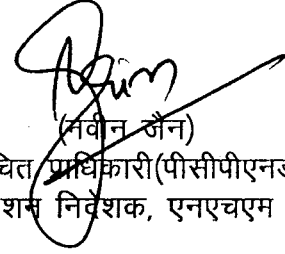 (नवीन जैन)
चित प्राधिकारी(पीसीपीएनड
शन निदेशक, एनएचएम